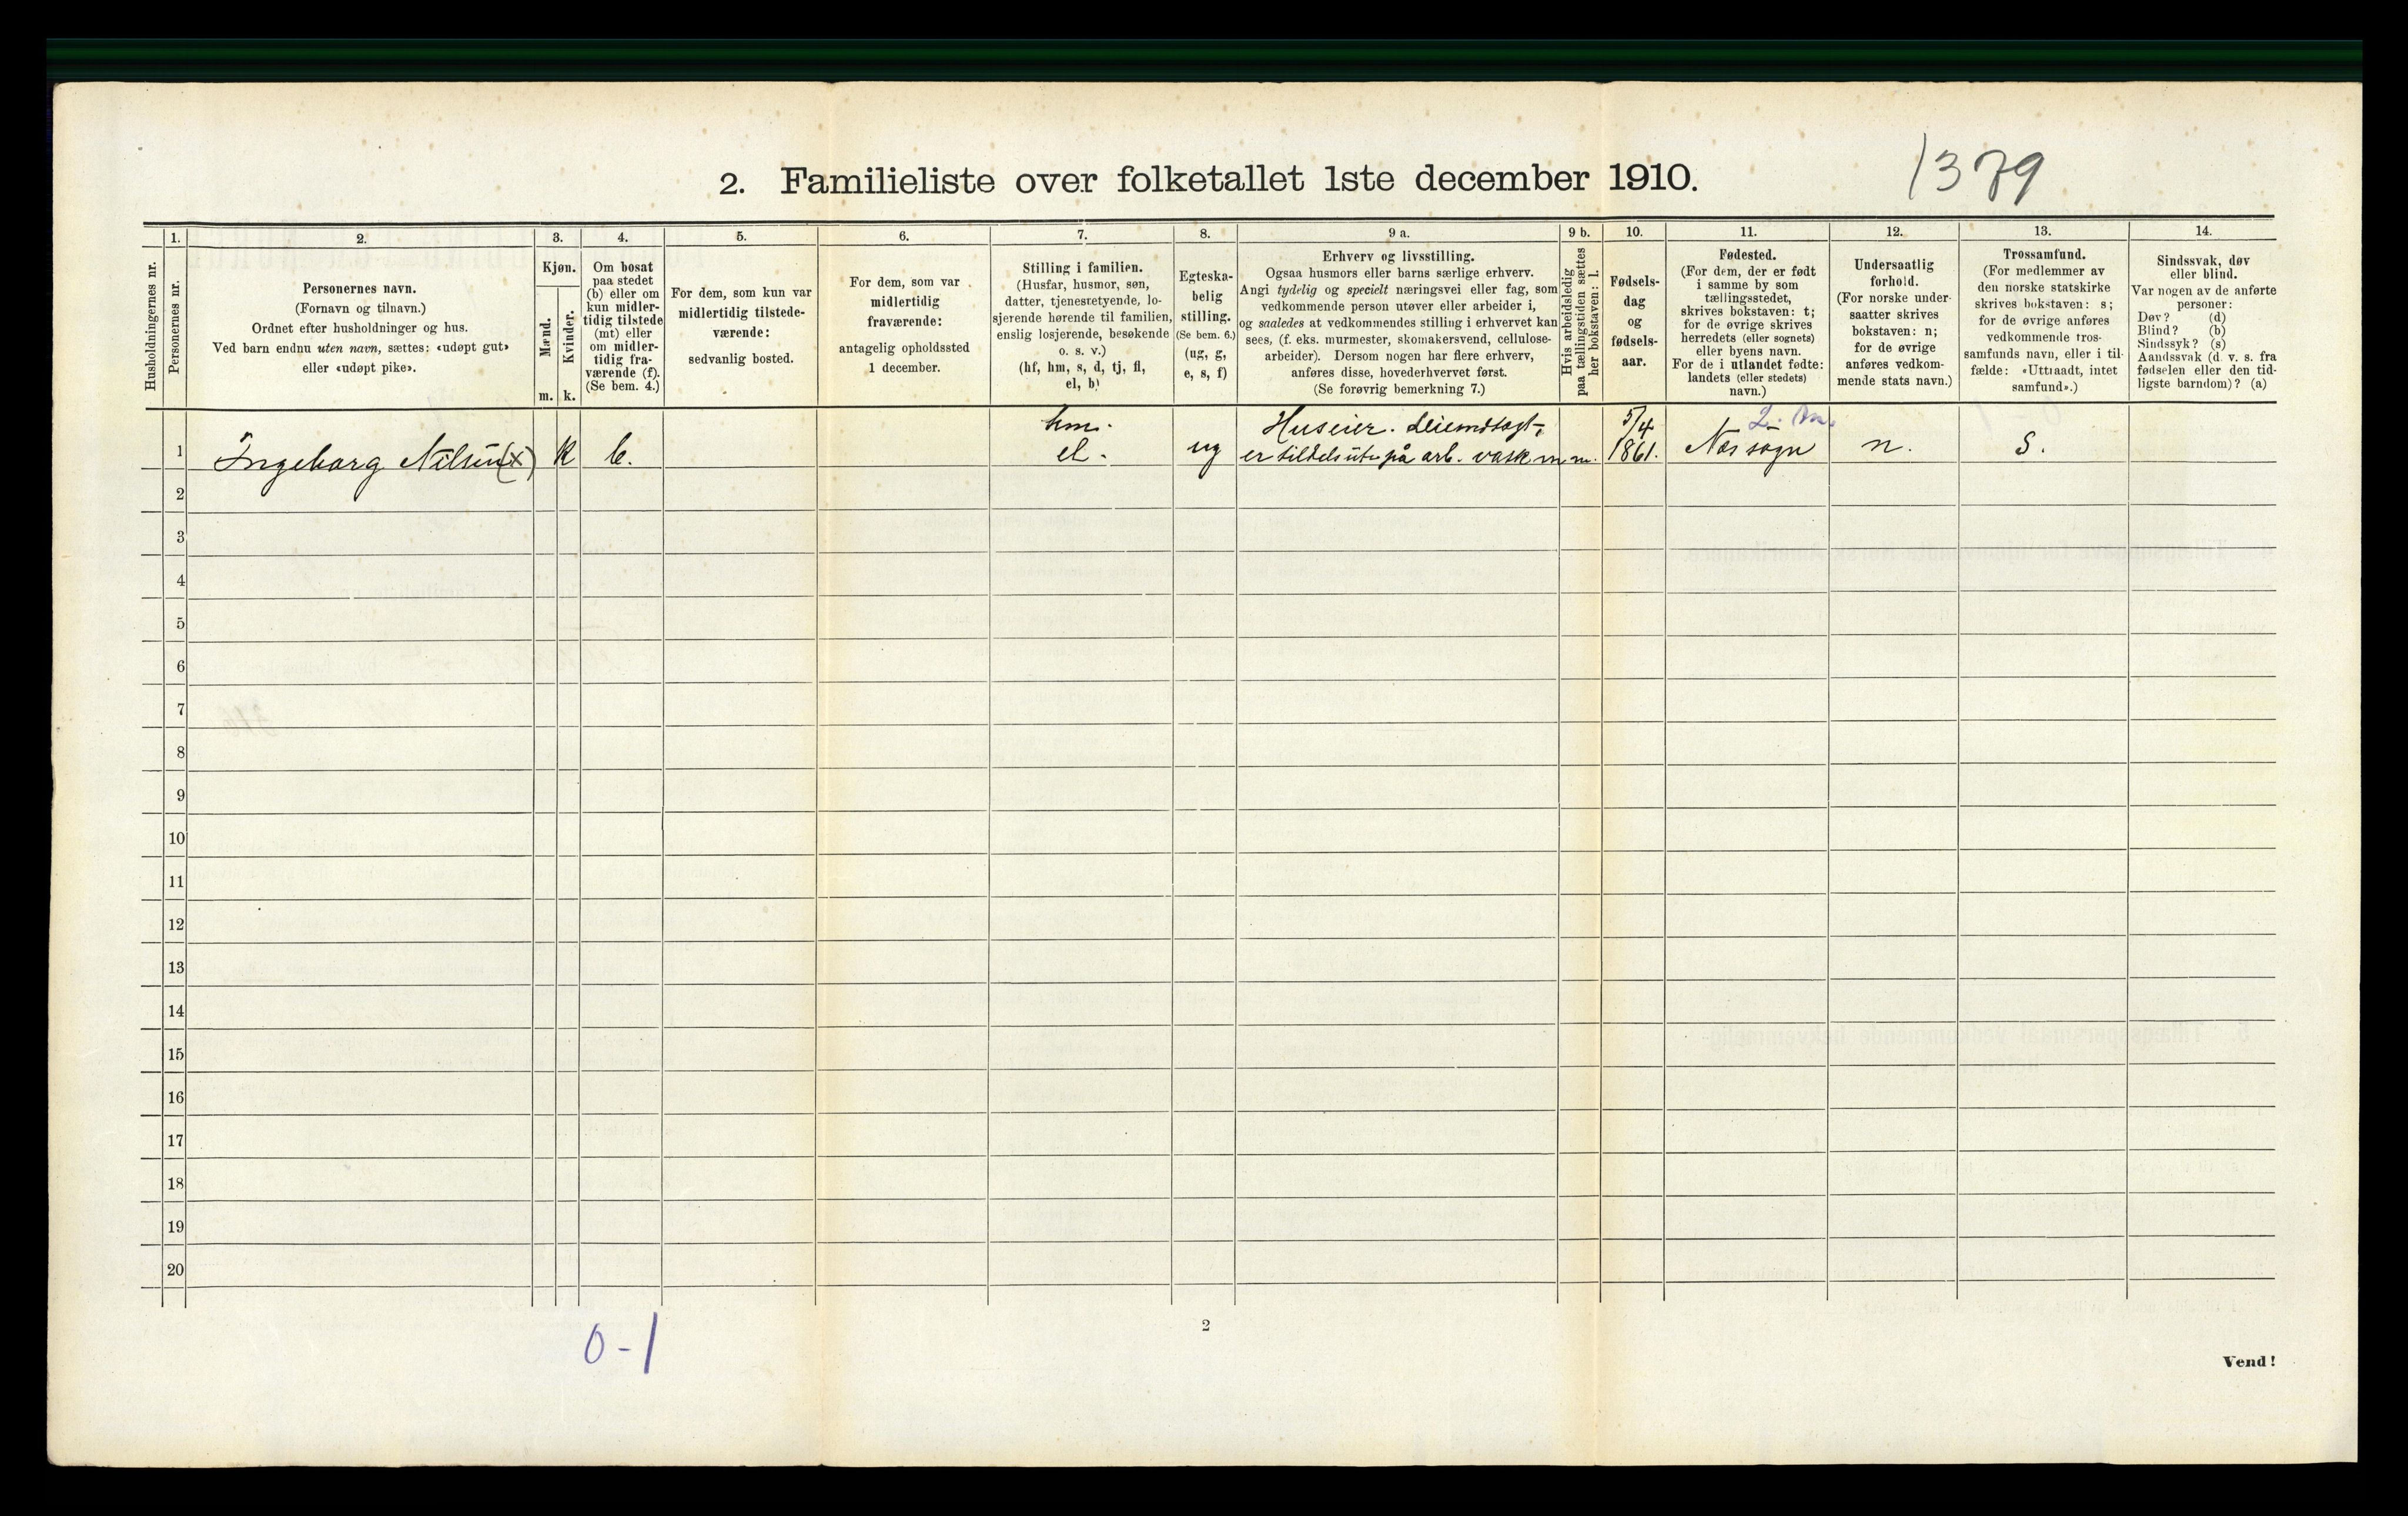 2. Familieliste over folketallet 1ste december 1910.
1379
Husholdningernes nr.
1.
Personernes nr.
2.
Personernes navn.
(Fornavn og tilnavn.)
Ordnet efter husholdninger og hus.
Ved barn endnu uten navn, sættes: «udøpt gut»
eller «udøpt pike».
3.
Kjøn.
Mænd.
Kvinder.
m. k.
4.
Om bosat
paa stedet
(b) eller om
kun midler-
tidig tilstede
(mt) eller
om midler-
tidig fra-
værende (f).
(Se bem. 4.)
5.
For dem, som kun var
midlertidig tilstede-
værende:
sedvanlig bosted.
6.
For dem, som var
midlertidig
fraværende:
antagelig opholdssted
1 december.
7.
Stilling i familien.
(Husfar, husmor, søn,
datter, tjenestetyende, lo-
sjerende hørende til familien,
enslig losjerende, besøkende
o. s. v.)
(hf, hm, s, d, tj, fl,
el, b)
8.
Egteska-
belig
stilling.
(Se bem. 6.)
(ug, g,
e, s, f)
9 a.
Erhverv og livsstilling.
Ogsaa husmors eller barns særlige erhverv.
Angi tydelig og specielt næringsvei eller fag, som
vedkommende person utøver eller arbeider i,
og saaledes at vedkommendes stilling i erhvervet kan
sees, (f. eks. murmester, skomakersvend, cellulose-
arbeider). Dersom nogen har flere erhverv,
anføres disse, hovederhvervet først.
(Se forøvrig bemerkning 7.)
9 b.
Hvis arbeidsledig
paa tællingstiden sættes
her bokstaven: l.
10.
Fødsels-
dag
og
fødsels-
aar.
11.
Fødested.
(For dem, der er født
i samme by som
tællingsstedet,
skrives bokstaven: t;
for de øvrige skrives
herredets (eller sognets)
eller byens navn.
For de i utlandet fødte:
landets (eller stedets)
navn.)
12.
Undersaatlig
forhold.
(For norske under-
saatter skrives
bokstaven: n;
for de øvrige
anføres vedkom-
mende stats navn.)
13.
Trossamfund.
(For medlemmer av
den norske statskirke
skrives bokstaven: s;
for de øvrige anføres
vedkommende tros-
samfunds navn, eller i til-
fælde: «Uttraadt, intet
samfund».)
14.
Sindssvak, døv
eller blind.
Var nogen av de anførte
personer:
Døv? (d)
Blind? (b)
Sindssyk? (s)
Aandssvak (d. v. s. fra
fødselen eller den tid-
ligste barndom)? (a)
hm. Huseier. 5/4
1 Ingeborg Nilsen (x) k b. el. ug er tildels ute på arb. vask m m. 1861. Nes sogn n. s.
2
3
4
5
6
7
8
9
10
11
12
13
14
15
16
17
18
19
20
0-1
2
Vend!